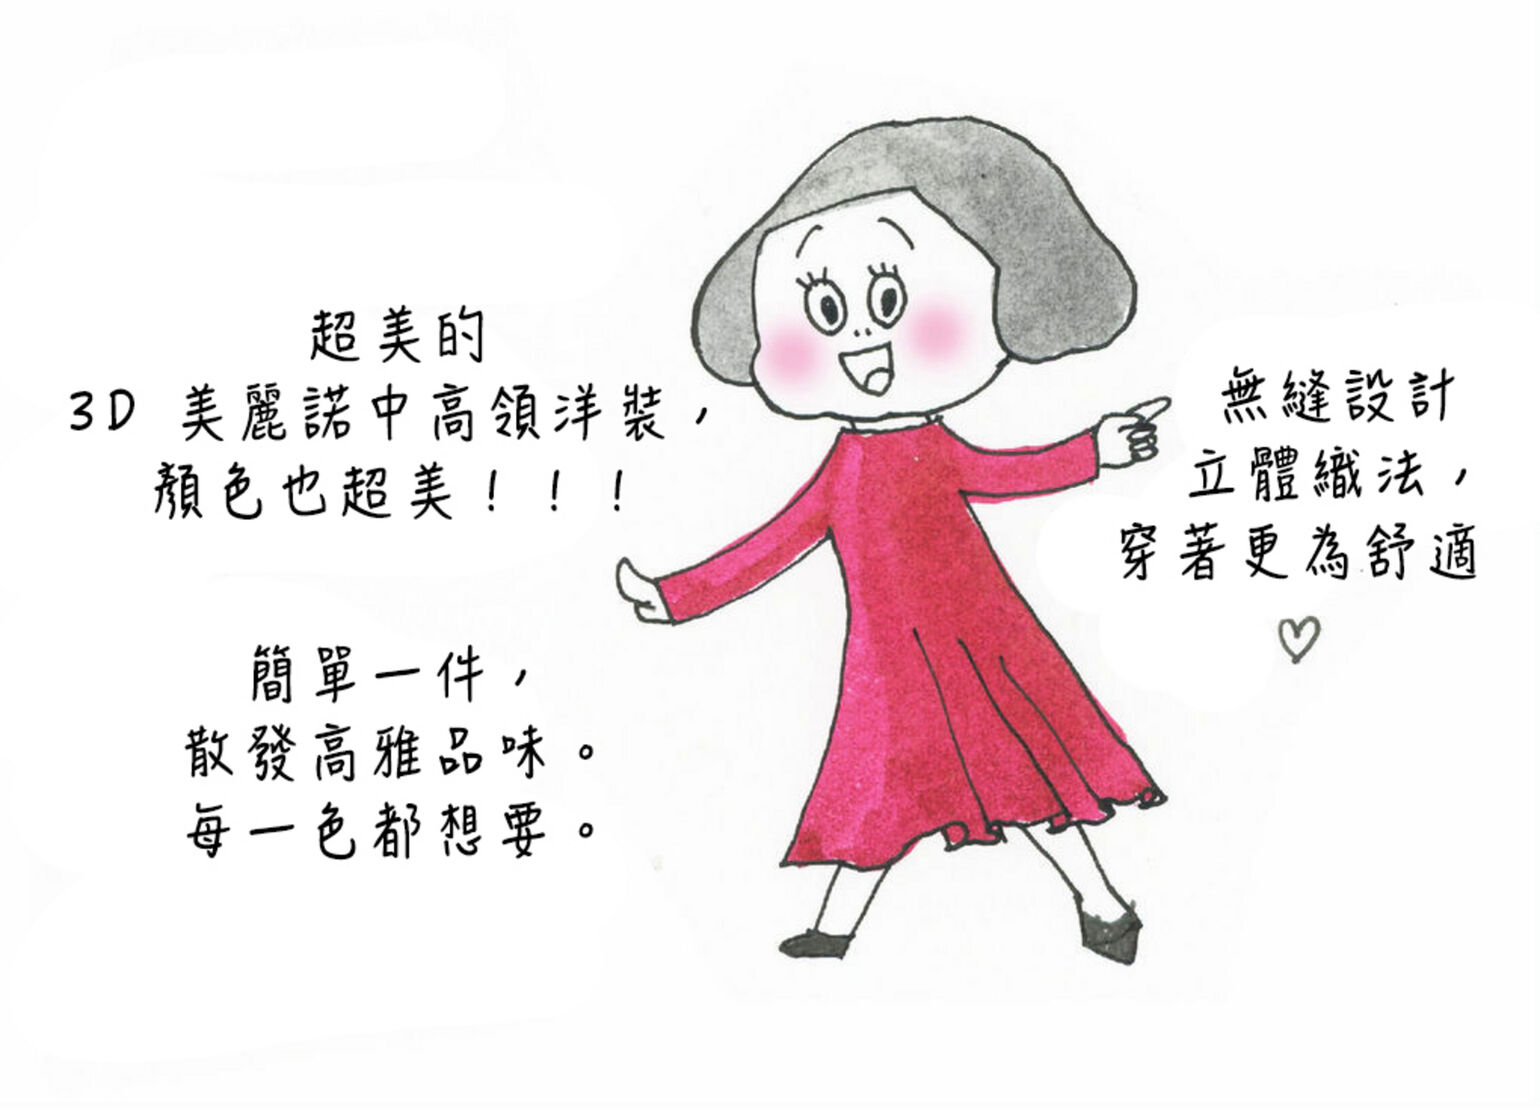 超美的
3D 美麗諾中高領洋裝，
顏色也超美！！！
簡單一件，
散發高雅品味。
每一色都想要。
無縫設計
立體織法，
穿著更為舒適
♡